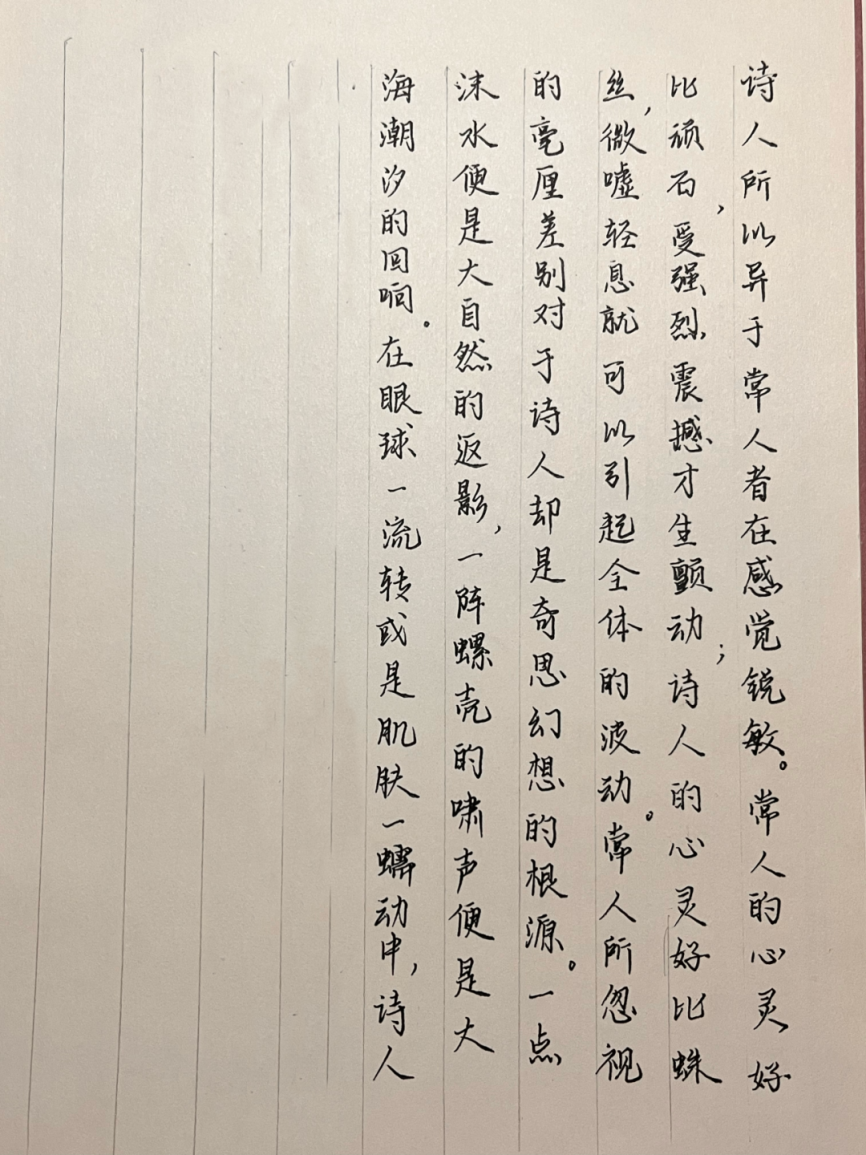 诗人所以异于常人者在感觉锐敏。常人的心灵好
比顽石，受强烈震撼才生颤动；诗人的心灵好比蛛
丝，微嘘轻息就可以引起全体的波动。常人所忽视
的毫厘差别对于诗人却是奇思幻想的根源。一点
沫水便是大自然的返影，一阵螺壳的啸声便是大
海潮汐的回响。在眼球一流转或是肌肤一蠕动中，诗人